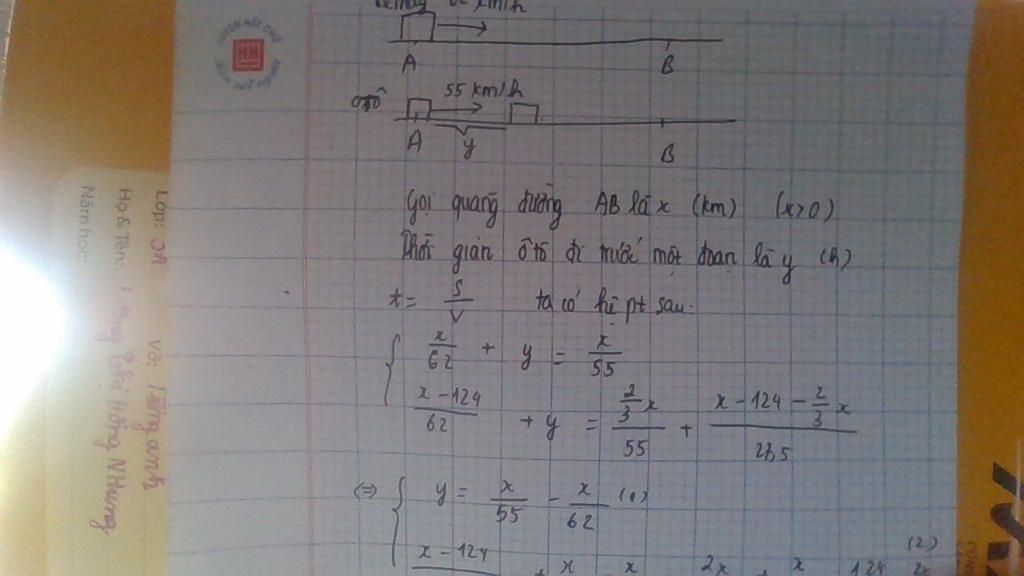 62 km/h
A B
ô tô 55 km/h
A y B
Gọi quãng đường AB là x (km) (x>0)
Thời gian ô tô đi trước một đoạn là y (h)
t = S/V ta có hệ pt sau:
{ x/62 + y = x/55
(x - 124)/62 + y = (2/3 x)/55 + (x - 124 - 2/3 x)/27,5
<=> { y = x/55 - x/62 (1)
x - 124 + x x 2x + x 124 (2)
Lớp: 9A Vở:
Họ & Tên: Thị Hồng Nhung
Năm học: